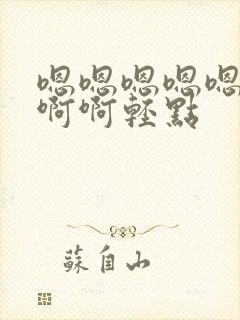 嗯嗯嗯嗯嗯
啊啊輕點
蘇自山